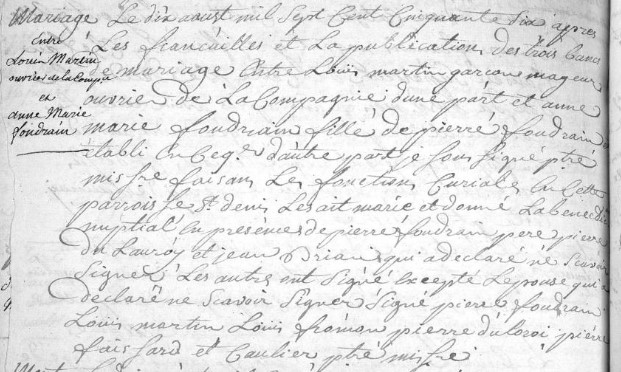 Mariage
Entre
Louis Martin
ouvrier de la Compie
et
Anne Marie
foudrain
Le dix aoust mil Sept Cent Cinquante Six apres
Les fiancailles et La publication des trois bans
de mariage Entre Loüis martin garcon mageur
ouvrier de La Compagnie dune part et anne
marie foudrain fille de pierre foudrain
établi En ce qr. dautre part je Sous Signé ptre
miss.re faisan Les fonctions Curiales En Cette
parroisse St denis Les ait marié et donné La benedic
nuptial En presences de pierre foudrain pere pierre
du Lauroy et jean Brian qui a declaré ne Scavoir
Signer Les autres ont Signé excepté Lepouse qui a
declaré ne Scavoir Signer Signé pierre foudrain
Loüis martin Loüis froman pierre duloroi pierre
faissard et Caulier ptre miss.re